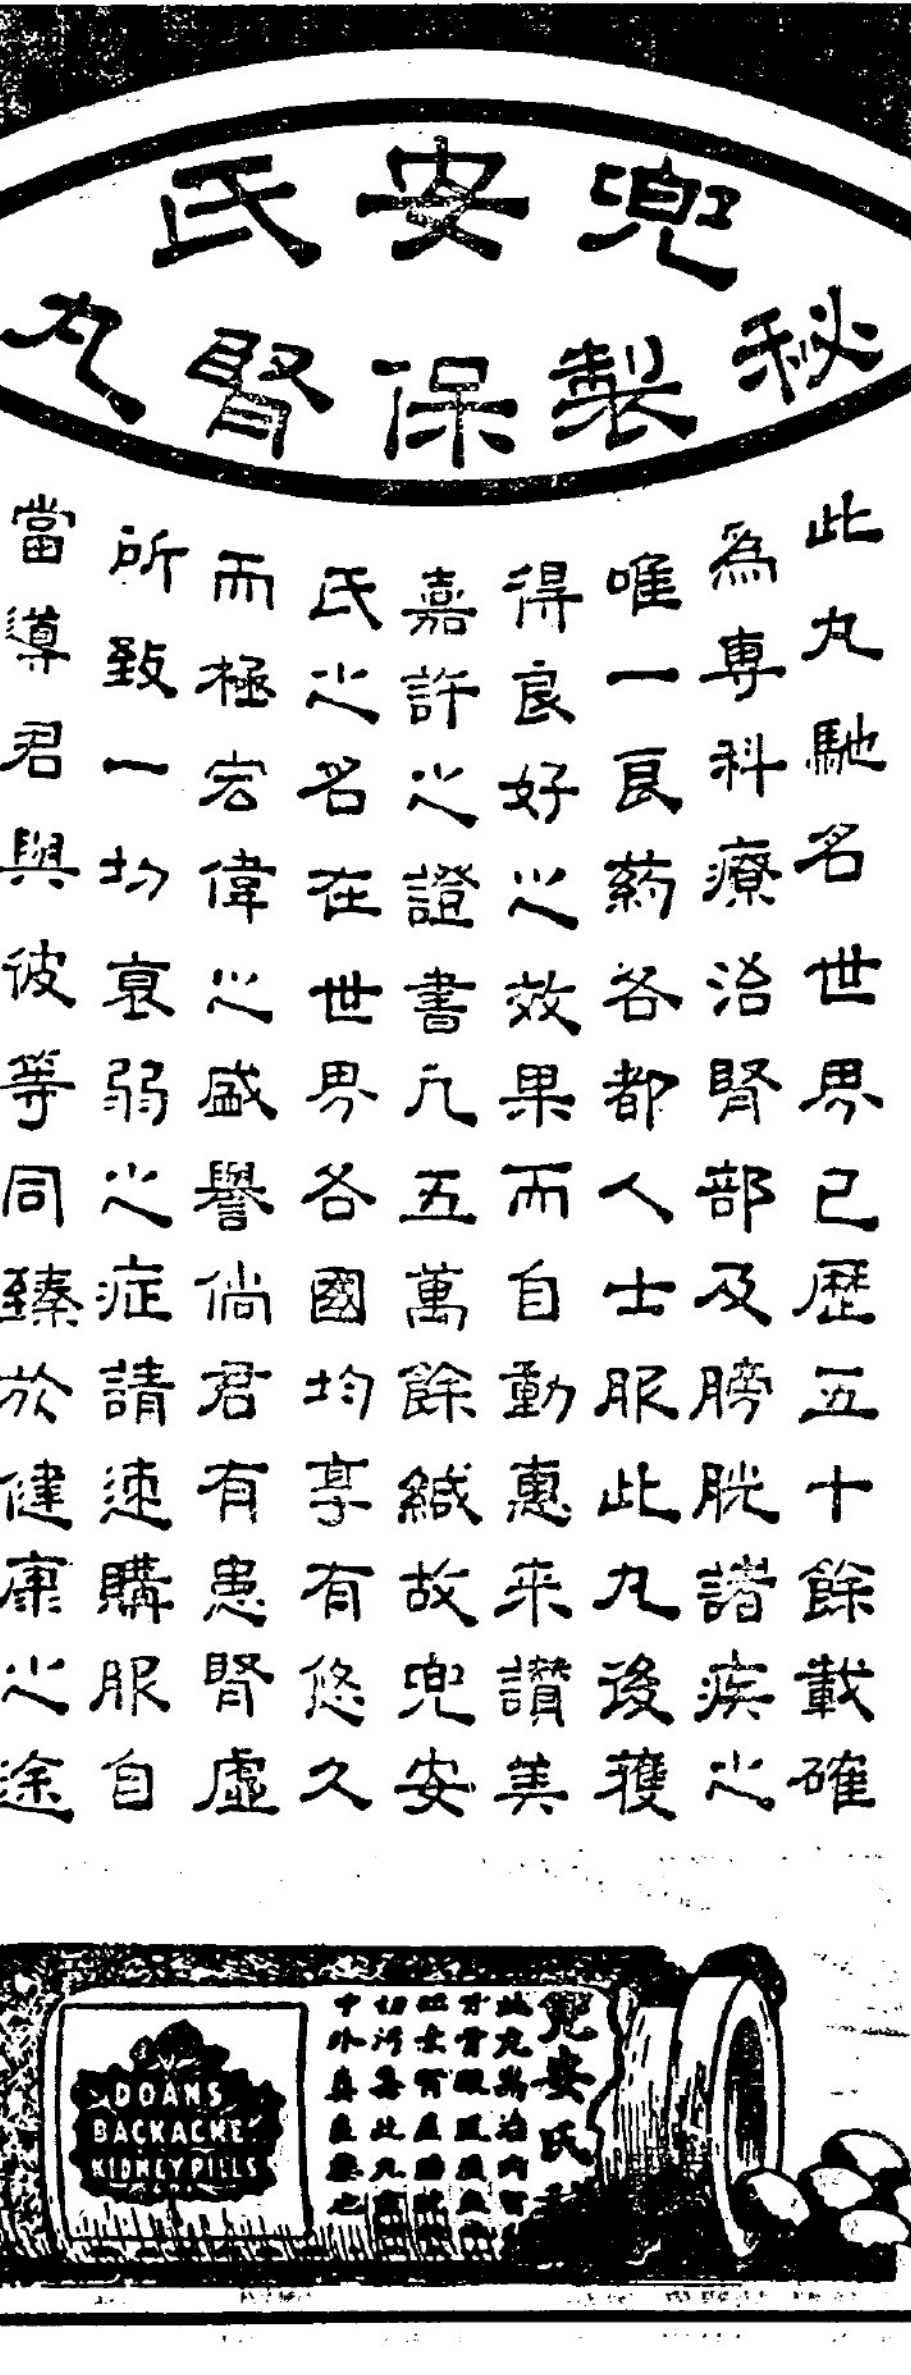 兜安氏
秘製保腎丸
此丸馳名世界已歷五十餘載確
為專科療治腎部及膀胱諸疾之
唯一良藥各都人士服此丸後獲
得良好之效果而自動惠来讚美
嘉許之證書凡五萬餘緘故兜安
氏之名在世界各國均享有悠久
而極宏偉之盛譽倘君有患腎虛
所致一切衰弱之症請速購服自
當導君與彼等同臻於健康之途
兜安氏
DOANS
BACKACHE
KIDNEY PILLS